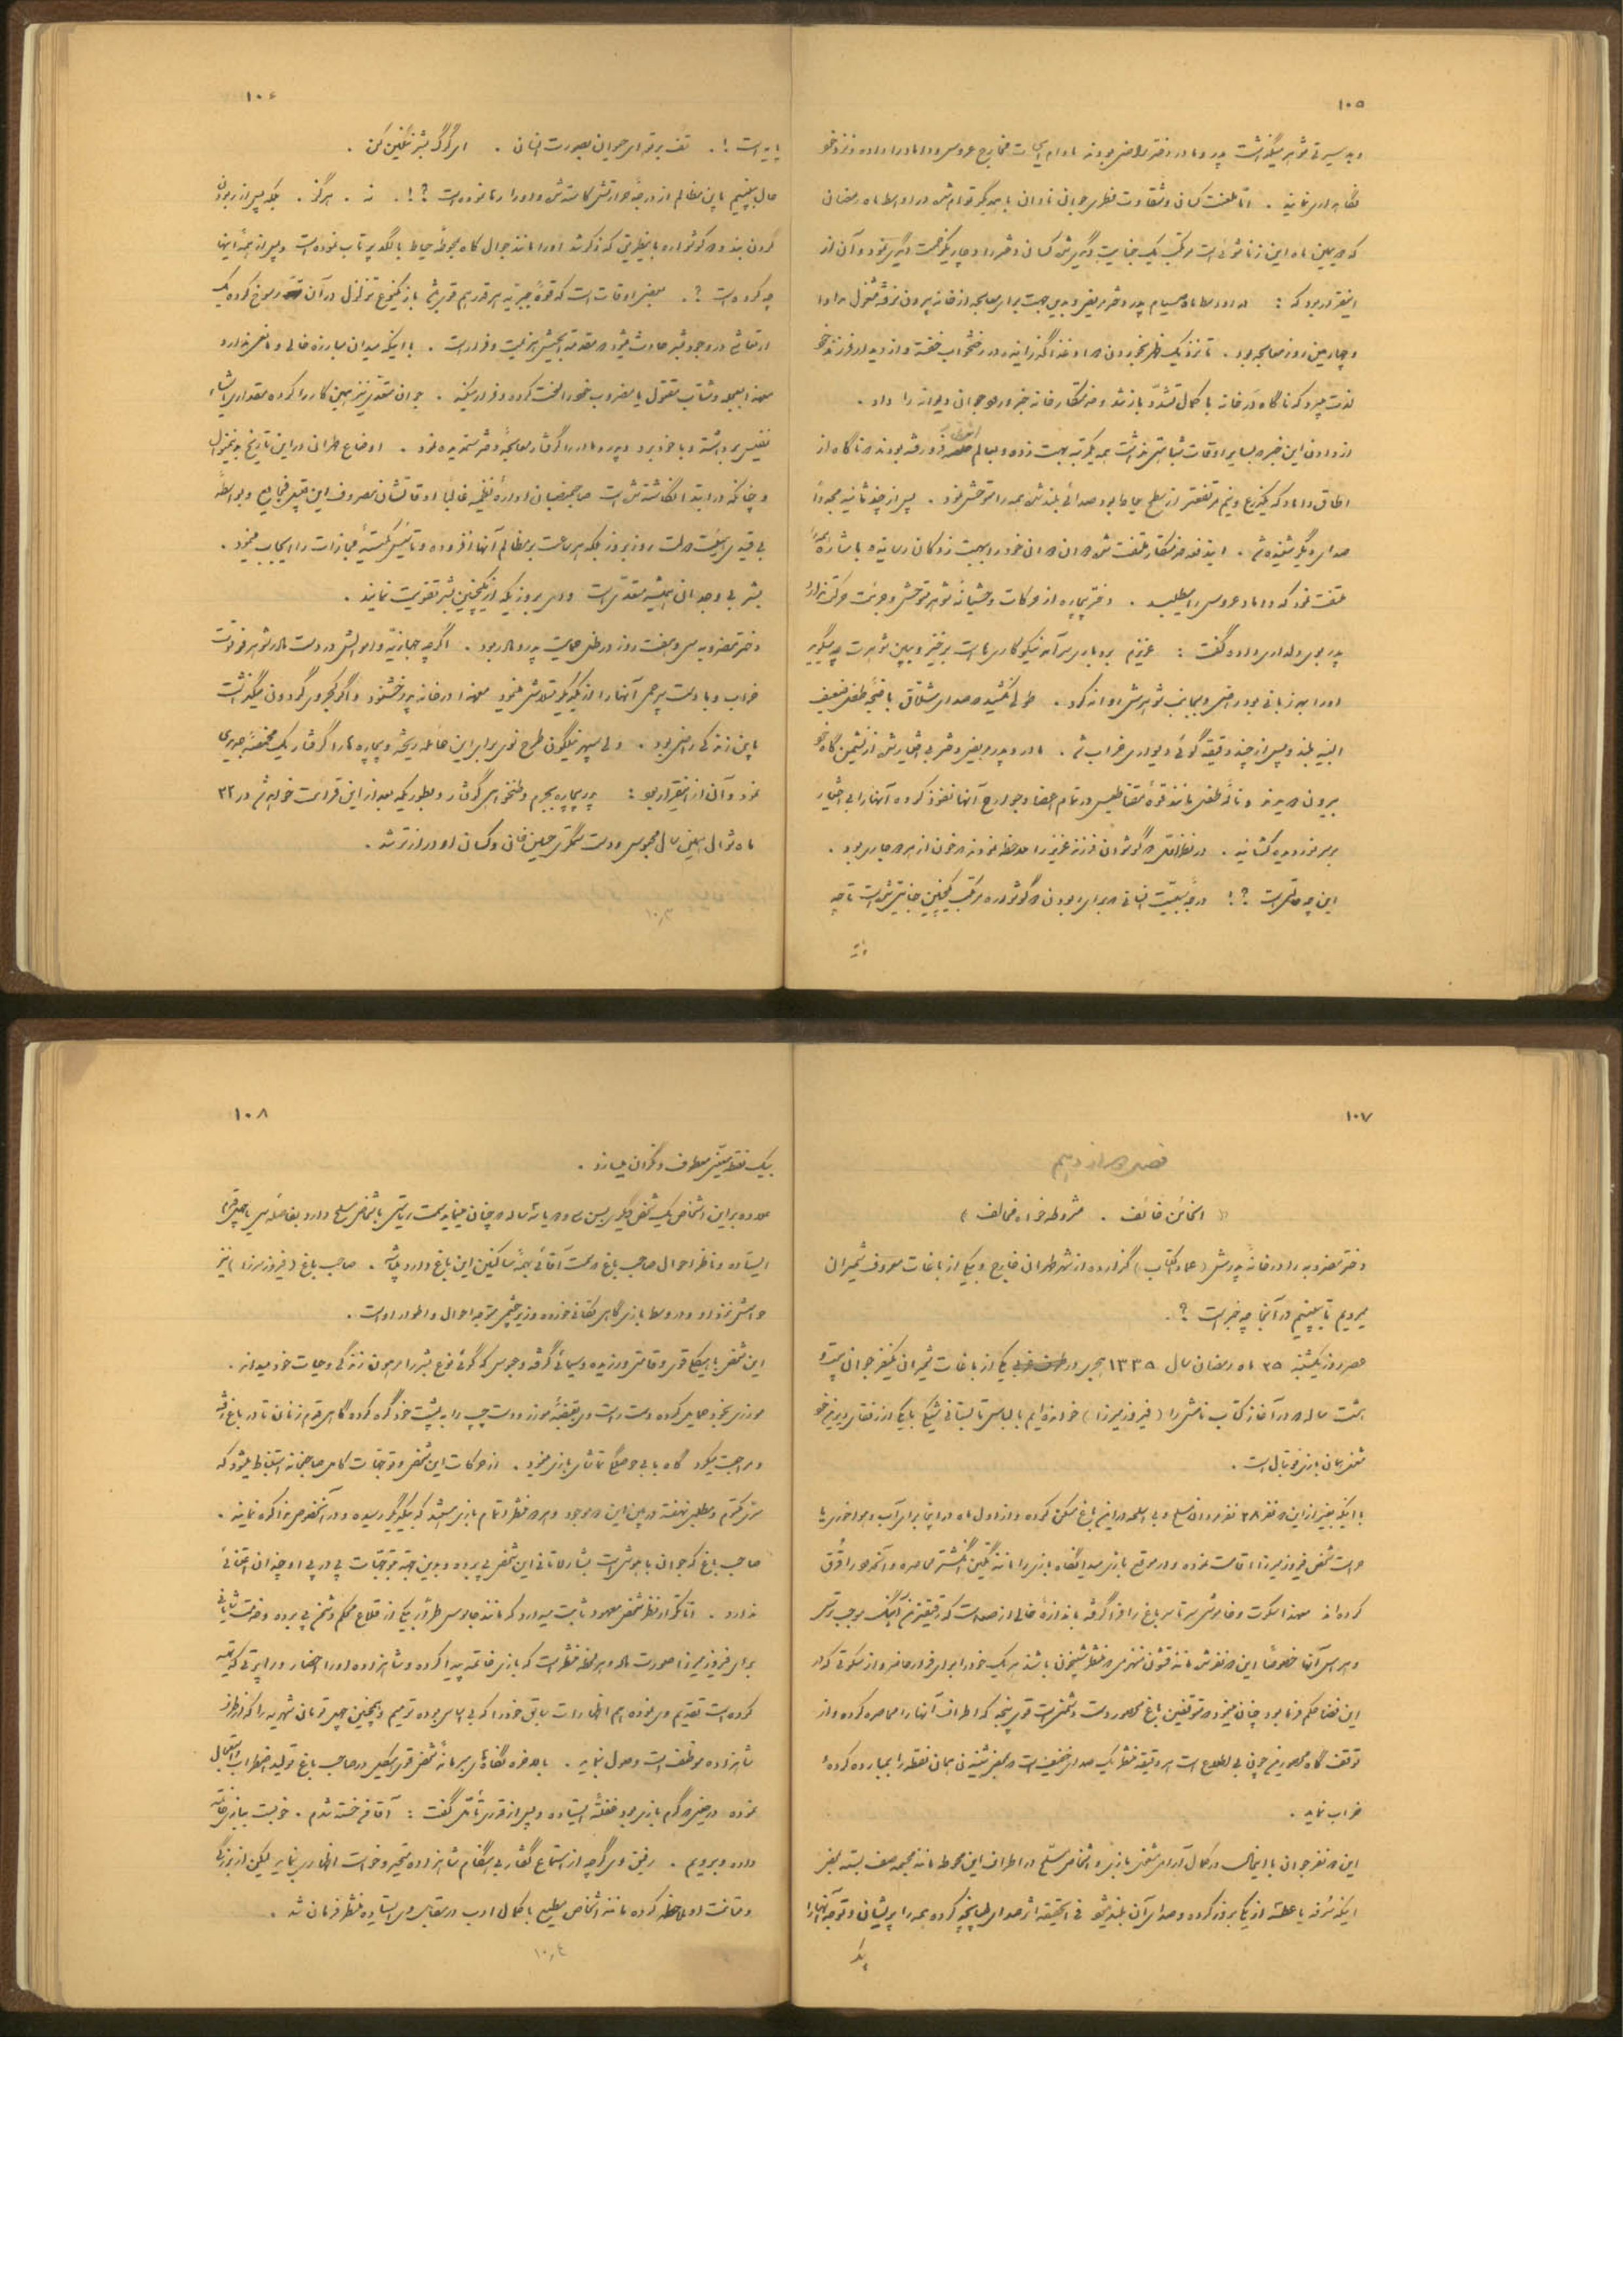 ۱۰۵
و بد سیرتی شوهر میگذشت پدر و مادر دختر راضی بودند مادام مخارج عروس و داماد را داده و نزد خود
نگاهداری نمایند . اما ملعنت کسان و شقاوت فطری جوان نادان با یکدیگر توام شده در اواسط ماه رمضان
که در همین ماه این زناشوئی است مرتکب یک جنایت دیگری شده کسان دختر را دچار یک زحمت دیگری نمود و آن از
اینقرار بود که : در اواسط ماه صیام پدر دختر مریض و بدین جهت برای معالجه از خانه بیرون نرفته مشغول مداوا
و چهارمین روز معالجه بود . تا نزدیک ظهر بخوردن دوا و غذا گذرانیده در رختخواب خفته و از دیدار فرزند خود
لذت میبرد که ناگاه درِ خانه با کمال تشدّد باز شد و خدمتکار خانه خبر ورود جوان دیوانه را داد .
از دادن این خبر که بسایر اوقات شباهتی نداشت همه یکمرتبه بهت زده و بعالم فرو رفته بودند که ناگاه از
اطاق داماد که یکذرع و نیم مرتفعتر از سطح حیاط بود صدائی بلند شده همه را متوحش نمود . پس از چند ثانیه مجدداً
صدای دیگر شنیده شد . ایندفعه خدمتکار ملتفت شده دوان دوان خود را به بهت زدگان رسانیده با اشاره
ملتفت نمود که داماد عروس را میطلبد . دختر بیچاره از حرکات وحشیانه شوهر متوحش و جرئت حرکت ندارد
پدر بوی دلداری داده گفت : عزیزم بردباری سرآمد نیکوکاریها است برخیز و ببین شوهرت چه میگوید
او را بهر زبانی بود راضی و بجانب شوهرش روانه کرد . طولی نکشید که صدای شلاق با ضجه طفل ضعیف
البنیه بلند و پس از چند دقیقه گوئی دیواری خراب شد . مادر و پدر مریض دختر بی اختیارش از نشیمن گاه خود
بیرون میدوند و ناله طفل مانند قوه مقناطیس در تمام اعضا و جوارح آنها نفوذ کرده آنها را بی اختیار
بر سر نور دیده کشانید . در نظر اول دو گوش آن فرزند عزیز را ملاحظه نمودند که خون از هر دو جاری بود .
این چه حالت است ؟! درجه سبعیت انسانی که برای ربودن دو گوشواره مرتکب یک چنین جنایتی شده است تا چه
پایه
۱۰۶
پایه است !. تف بر تو ای حیوان بصورت انسان . ای گرگ بشر ننگین کن .
حال به بینیم با این مظالم از درجه حرارتش کاسته شده و او را رها نموده است ؟!. نه . هرگز . بلکه پس از ربودن
گردن بند و دو گوشواره بطریقی که ذکر شد او را مانند جوال کاه بمحوطه حیاط با لگد پرتاب نموده است و پس از همه اینها
چه کرده است ؟. بعضی اوقات است که قوه جبریه هر قدر هم قوی باشد باز یکنوع تزلزل در آن رسوخ کرده یک
ارتعاشی در وجود بشر حادث میشود که مقدمة الجیش هزیمت و فرار است . با اینکه میدان مبارزه خالی و مانعی ندارد
معهذا بعجله و شتاب مقتول یا مضروب خود را لخت کرده و فرار میکند . جوان متعدی نیز همین کار را کرده مقداری اشیاء
نفیس برداشته و با خود برد و پدر و مادر را گرفتار معالجه دختر ستمدیده نمود . اوضاع طهران در این تاریخ بدینمنوال
و چنانکه در ابتدا نگاشته شده است صاحبمنصبان اداره نظمیه غالباً اوقاتشان مصروف این قبیل فجایع و بواسطه
بی قیدی رئیس دولت روز بروز بلکه هر ساعت بر مظالم آنها افزوده و تأسیس کمیته مجازات را ایجاب مینمود .
بشر بی وجدان همیشه متعدّی است وای بروزیکه از یک چنین بشر تقویت نمایند .
دختر مضروبه سی و هفت روز در ظل حمایت پدر و مادر بود . اگر چه جهازیه و اموالش در دست مادر شوهر فرتوت
خراب و با دست بیرحمی آنها را از یکدیگر متلاشی مینمود معهذا در خانه پدر خشنود و اگر کجروی گردون میگذاشت
باین زندگی راضی بود . ولی سپهر نیلگون طرح نوی برای این عائله ریخته و بیچاره ها را گرفتار یک مخمصه جدیدی
نمود و آن از اینقرار بود : پدر بیچاره بجرم وطنخواهی گرفتار و بطوریکه بعد از این قرائت خواهد شد در ۲۲
ماه شوال همین سال محبوس و دست ستمگری حسین خان و کسان او درازتر شد .
۱۰۳
۱۰۷
فصل دوازدهم
« الخائن خائف . مشروطه خواه مخالف »
دختر مضروبه را در خانه پدرش (عماد الکتاب) گذارده از شهر طهران خارج و بیکی از باغات معروف شمیران
میرویم تا به بینیم در آنجا چه خبر است ؟.
عصر روز یکشنبه ۲۵ ماه رمضان سال ۱۳۳۵ هجری در یکی از باغات شمیران یکنفر جوان بیست و
هشت ساله که در آغاز کتاب نامش را (فیروز میرزا) خوانده ایم با لباس تابستانی شیک با یکی از رفقای دیرینه خود
مشغول همان بازی فوتبال است .
با اینکه بغیر از این دو نفر ۳۸ نفر مردان مسلح و بی اسلحه در این باغ مسکن کرده و از اول ماه در اینجا برای آب و هواخوری یا
حراست شخص فیروز میرزا اقامت نموده و در موقع بازی میدانگاه بازی را مانند نگین انگشتر محاصره و آنحدود را قُرُق
کرده اند معهذا سکوت و خاموشی سرتاسر باغ را فرا گرفته باندازه خالی از صداست که دقیقترین آهنگ موجب ترس
و هراس آنها خصوصاً این دو نفر شده مانند قشون منهزمی که منتظر شبیخون باشند هر یک خود را برای فرار حاضر و از سکوتی که در
این فضا حکمفرما بود چنان مینمود که متوقفین باغ محصور دست دشمنی است قوی پنجه که اطراف آنها را محاصره کرده و از
توقف گاه محصورین چون بی اطلاع است هر دقیقه منتظر یک صدای خفیف است که بمحض شنیدن همان نقطه را بمبارده کرده
خراب نماید .
این دو نفر جوان با اینحال در کمال آرامی مشغول بازی و اشخاص مسلح در اطراف این محوطه مانند مجسمه صف بسته بمحض
اینکه سُرفه یا عطسه از یکی بروز کرده و صدای آن بلند میشد فی الحقیقه اثر صدای طپانچه کرده همه را پریشان و توجه آنها را
بیک
۱۰۸
بیک نقطه معیّن معطوف و نگران میسازد .
علاوه بر این اشخاص یک شخص دیگری بسن سی و دو یا سه ساله که چنان مینماید سمت ریاستی با اشخاص مسلح دارد بفاصله سی یا چهل قدم
ایستاده و ناظر احوال صاحب باغ که سمت آقائی بهمه ساکنین این باغ دارد میباشد . صاحب باغ (فیروز میرزا) نیز
حواسش نزد او و در وسط بازی گاهی تکانی خورده و زیر چشمی متوجه احوال و اطوار او است .
این شخص با هیکل قوی و قامتی ورزیده و سیمائی گرفته و عبوس که گوئی نوع بشر را مرهون زندگی و حیات خود میداند .
موزری بخود حمایل کرده دست راست وی بقبضه موزر و دست چپ را به پشت خود گره کرده گاهی قدم زنان تا درِ باغ رفته
و مراجعت میکرد گاه با بی حوصلگی تماشای بازی مینمود . از حرکات این شخص و توجهات کامل صاحبخانه استنباط میشود که
سرّی مکتوم و مطلبی نهفته در بین این دو موجود و هر دو منتظر اتمام بازی هستند که بیکدیگر رسیده و در آنخصوص مذاکره نمایند .
صاحب باغ که جوان باهوشی است باشارات آنی این شخص پی برده و بدین جهت توجهات پی در پی او چندان اعتنائی
ندارد . اما تکرار نظر شخص معهود ثابت میدارد که مانند جاسوس طرّاری یکی از قلاع محکم دشمن پی برده و خدمت شایانی
برای فیروز میرزا صورت داده و هر لحظه منتظر است که بازی خاتمه پیدا کرده و شاهزاده او را احضار و راپرتی که تهیه
کرده است تقدیم وی نموده هم اظهارات سابق خود را که بی اساس بوده ترمیم و همچنین چهل تومان شهریه را که از طرف
شاهزاده موظف است وصول نماید . بالاخره نگاه‌های بیرحمانه شخص قوی هیکل در صاحب باغ تولید اضطراب استعجال
نموده در حین گرم بازی بود فقتة ایستاده و پس از قدری تأمل گفت : آقا من خسته شدم . خوبست ببازی خاتمه
داده و برویم . رفیق وی گرچه از استماع گفتار بی هنگام شاهزاده متحیر و خواست اظهاری بنماید لیکن از بزرگی
و متانت او ملاحظه کرده مانند اشخاص مطیع با کمال ادب در مقابل وی ایستاده منتظر فرمان شد .
۱۰۴